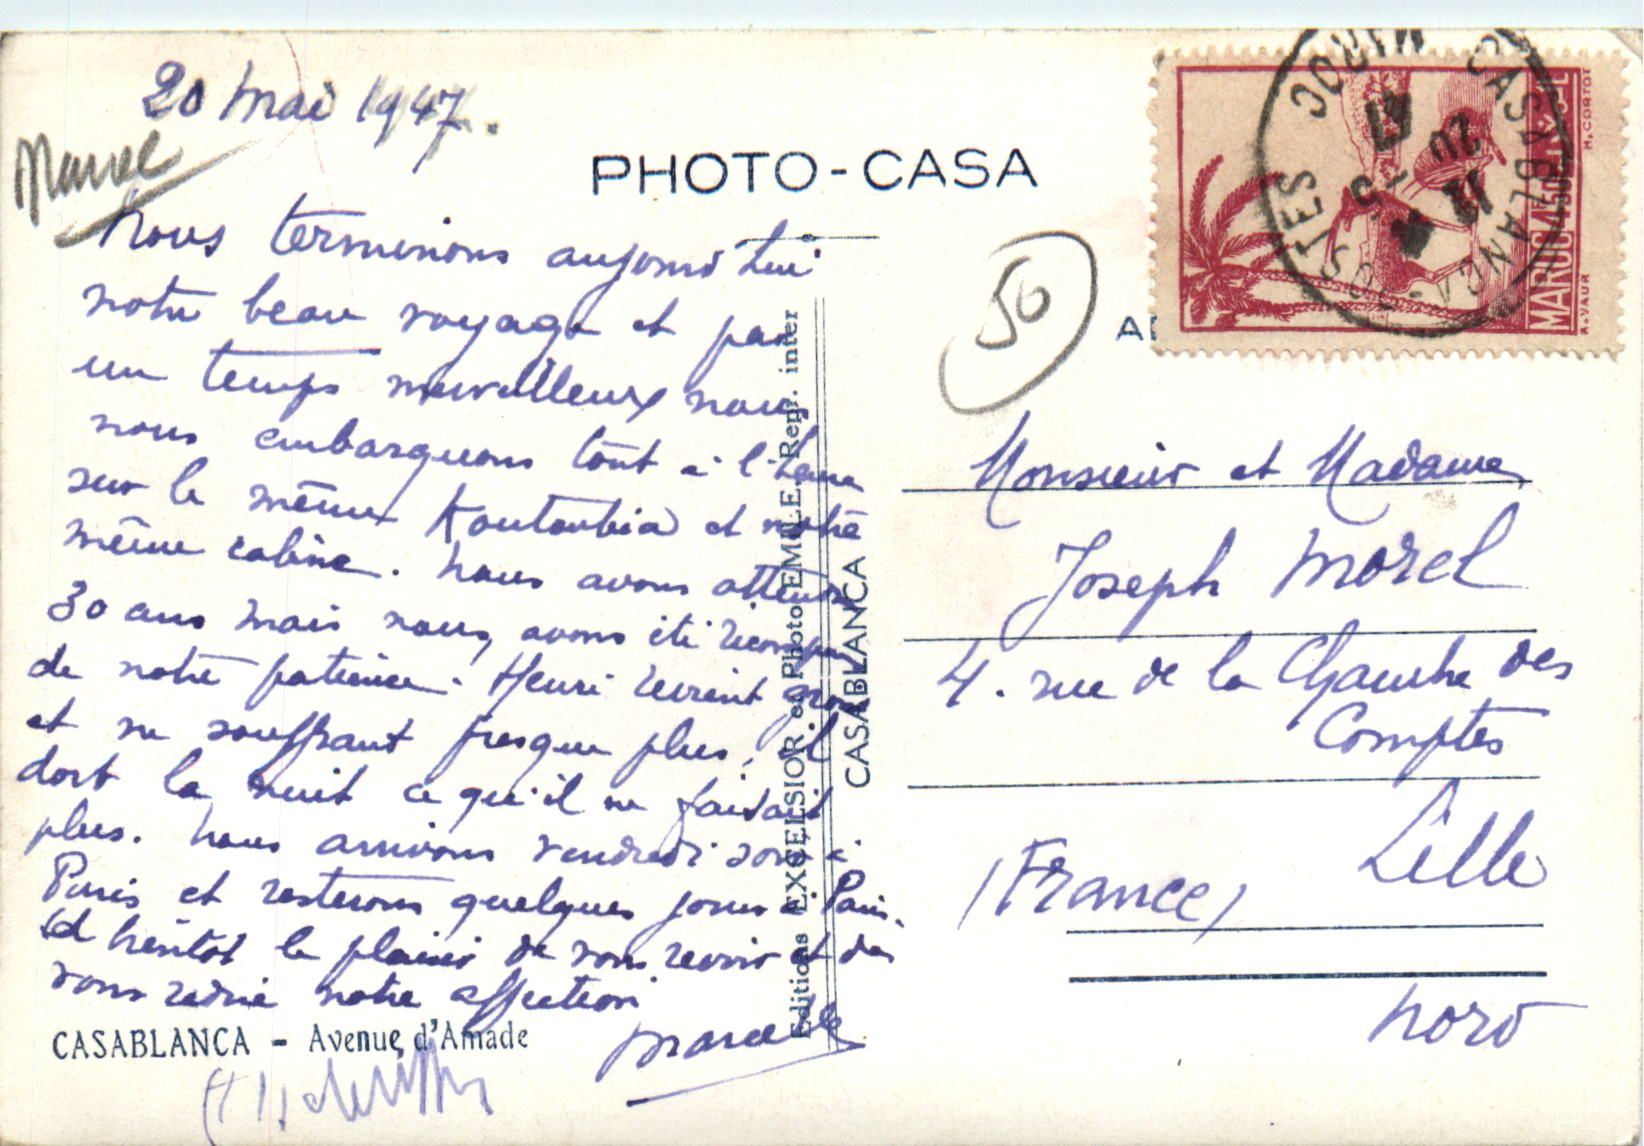 20 Mai 1947.
Marcel
PHOTO-CASA
Nous terminons aujourd'hui
notre beau voyage et par
un temps merveilleux nous
nous embarquons tout à l'heure
sur le même Koutoubia et notre
même cabine. Nous avons attendu
30 ans mais nous avons été récompensés
de notre patience. Henri revient gros
et ne souffrant presque plus, il
dort la nuit ce qu'il ne faisait
plus. Nous arrivons vendredi soir à
Paris et resterons quelques jours à Paris.
A bientôt le plaisir de vous revoir et de
vous redire notre affection
Marcelle
CASABLANCA - Avenue d'Amade
Editions EXCELSIOR et Photo EMILE. Repr. inter
CASABLANCA
50
AD
MAROC 4F50
POSTES
H. CORTOT
A. VAUR
CASABLANCA-POSTES
MAROC
11
20 -5
47
Monsieur et Madame
Joseph Morel
4. rue de la Chambre des
Comptes
Lille
(France)
Nord